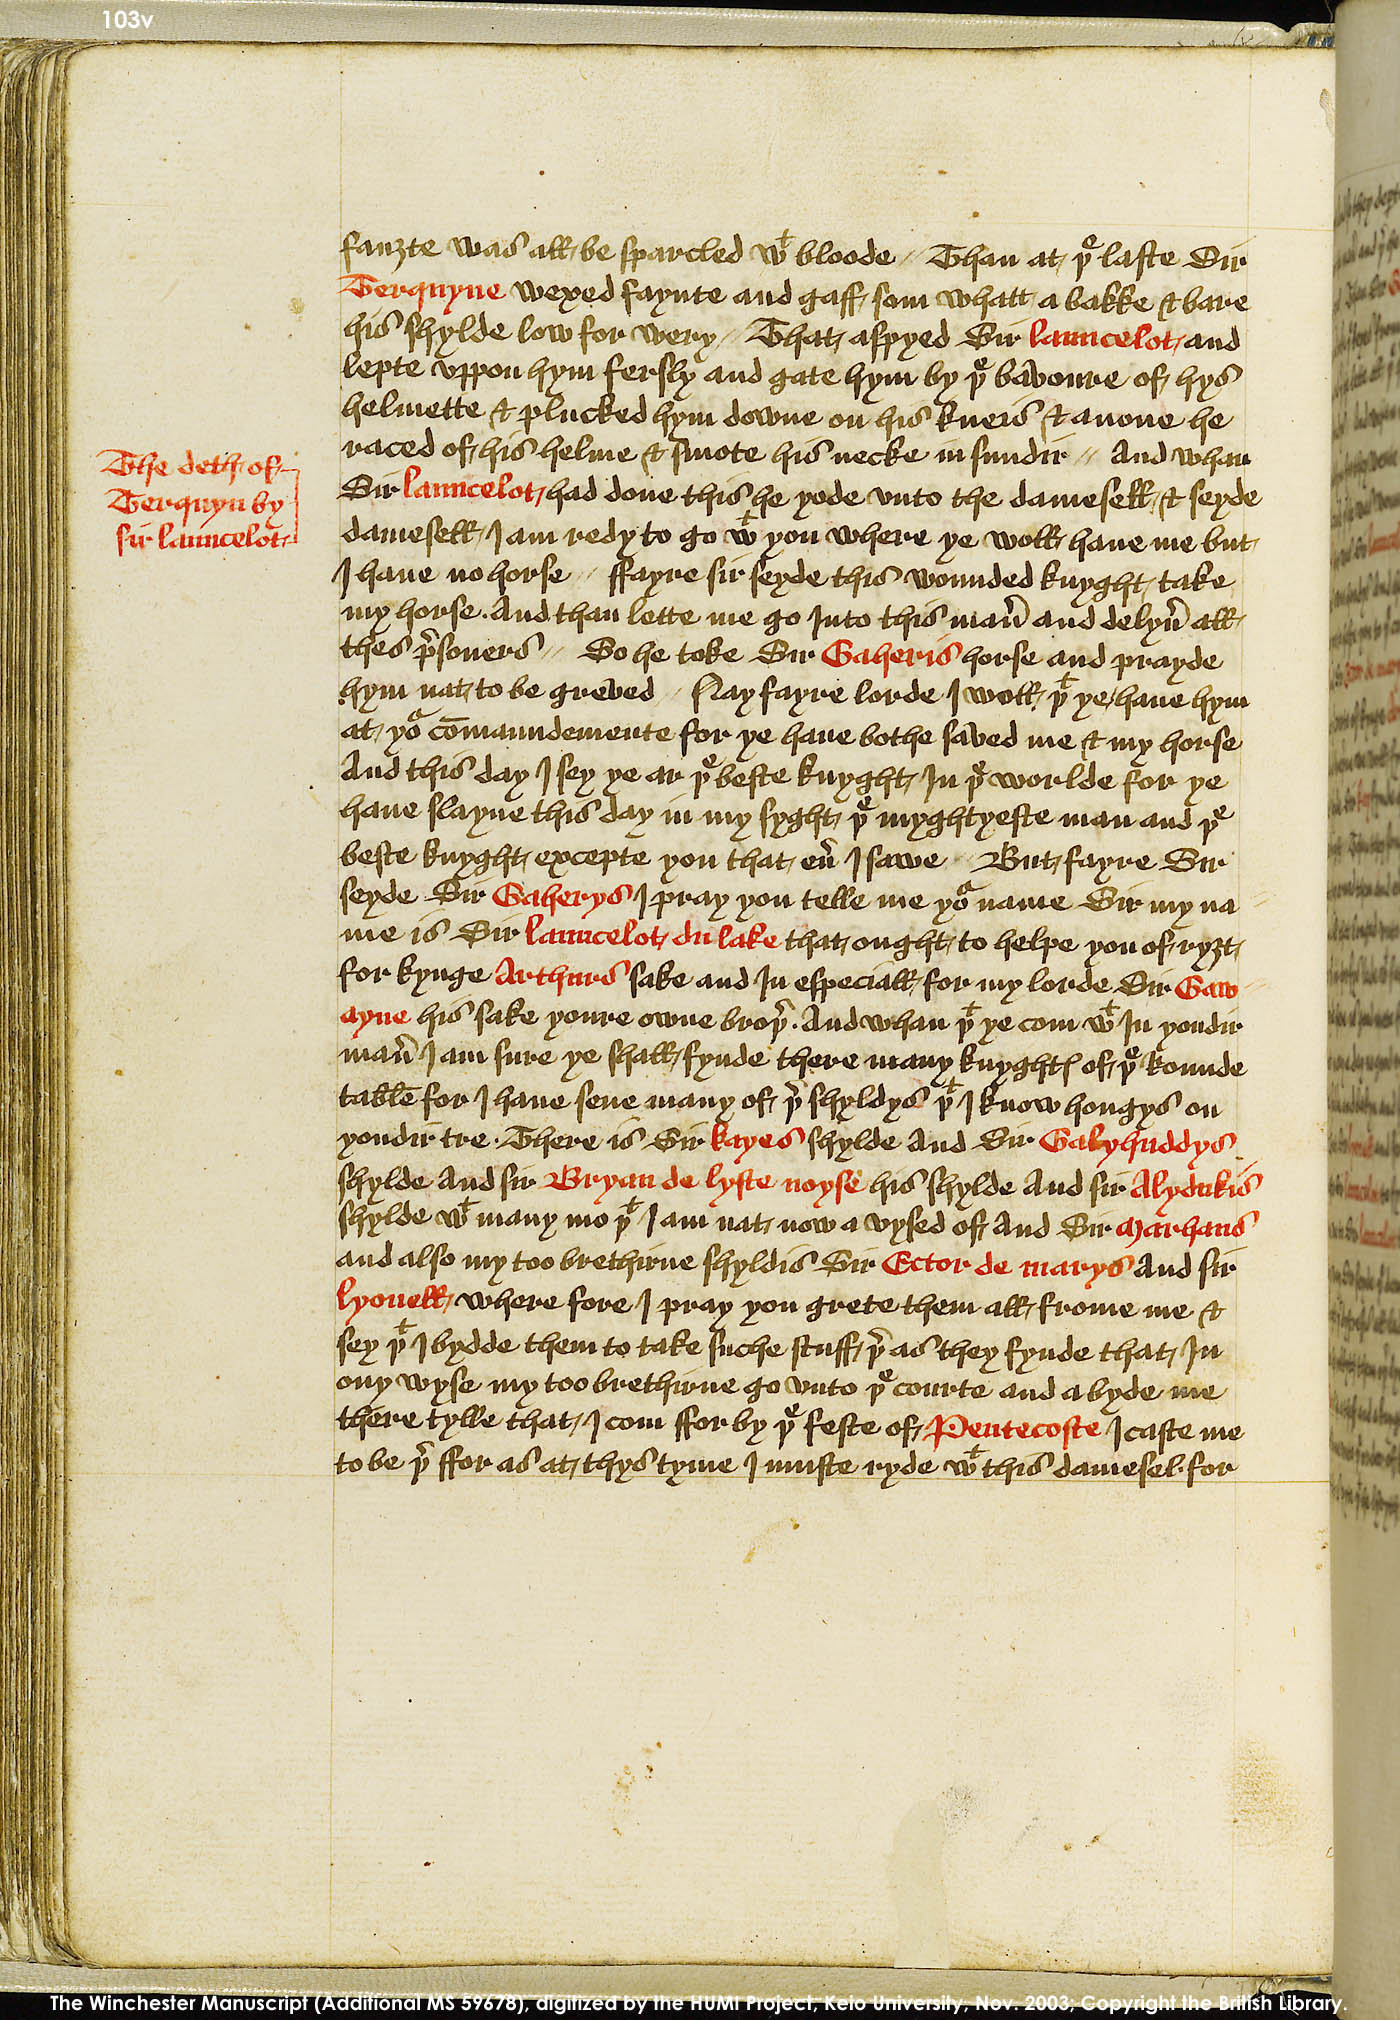 103v
fauȝte was all be sparcled wᵗ bloode // Than at þᵉ laste Sir
Terquyne wexed faynte and gaff som whatt a bakke & bare
his shylde low for wery // That aspyed Sir Launcelot and
lepte vppon hym fersly and gate hym by þᵉ bavoure of hys
helmette & plucked hym downe on his kneis & anone he
raced of his helme & smote his necke in sundir // And whan
The deth of
Terquyn by
sir Launcelot
Sir Launcelot had done this he yode vnto the damesell & seyde
damesell I am redy to go wᵗ you where ye woll haue me but
I haue no horse // ffayre sir seyde this wounded knyght take
my horse . And than lette me go Into this man̄ and delyū all
thes p̄soners // So he toke Sir Gaheris horse and prayde
hym nat to be greved // Nay fayre lorde I woll þᵗ ye haue hym
at yoᵘ com̄aundemente for ye haue bothe saved me & my horse
And this day I sey ye ar þᵉ beste knyght In þᵉ worlde for ye
haue slayne this day in my syght þᵉ myghtyeste man and þᵉ
beste knyght excepte you that eū I sawe // But fayre Sir
seyde Sir Gaherys I pray you telle me yoᵘ name Sir my na
me is Sir Launcelot du lake that ought to helpe you of ryȝt
for kynge Arthurs sake and In especiall for my lorde Sir Gaw
ayne his sake youre owne broþ̄ . And whan þᵗ ye com wᵗ In yondir
man̄ I am sure ye shall fynde there many knyghtꝭ of þᵉ Rounde
table for I haue sene many of þ̄ shyldys þᵗ I know hongys on
yondir tre . There is Sir kayes shylde And Sir Galyhuddys
shylde And sir Bryan de lyste noyse his shylde And sir Alydukis
shylde wᵗ many mo þᵗ I am nat now a vysed of And Sir Marhaus
and also my too brethirne shyldis Sir Ector de marys And sir
Lyonell where fore I pray you grete them all frome me &
sey þᵗ I bydde them to take suche stuff þ̄ as they fynde that In
ony wyse my too brethirne go vnto þᵉ courte and abyde me
there tylle that I com ffor by þᵉ feste of Pentecoste I caste me
to be þ̄ ffor as at thys tyme I muste ryde wᵗ this damesel for
The Winchester Manuscript (Additional MS 59678), digitized by the HUMI Project, Keio University, Nov. 2003; Copyright the British Library.